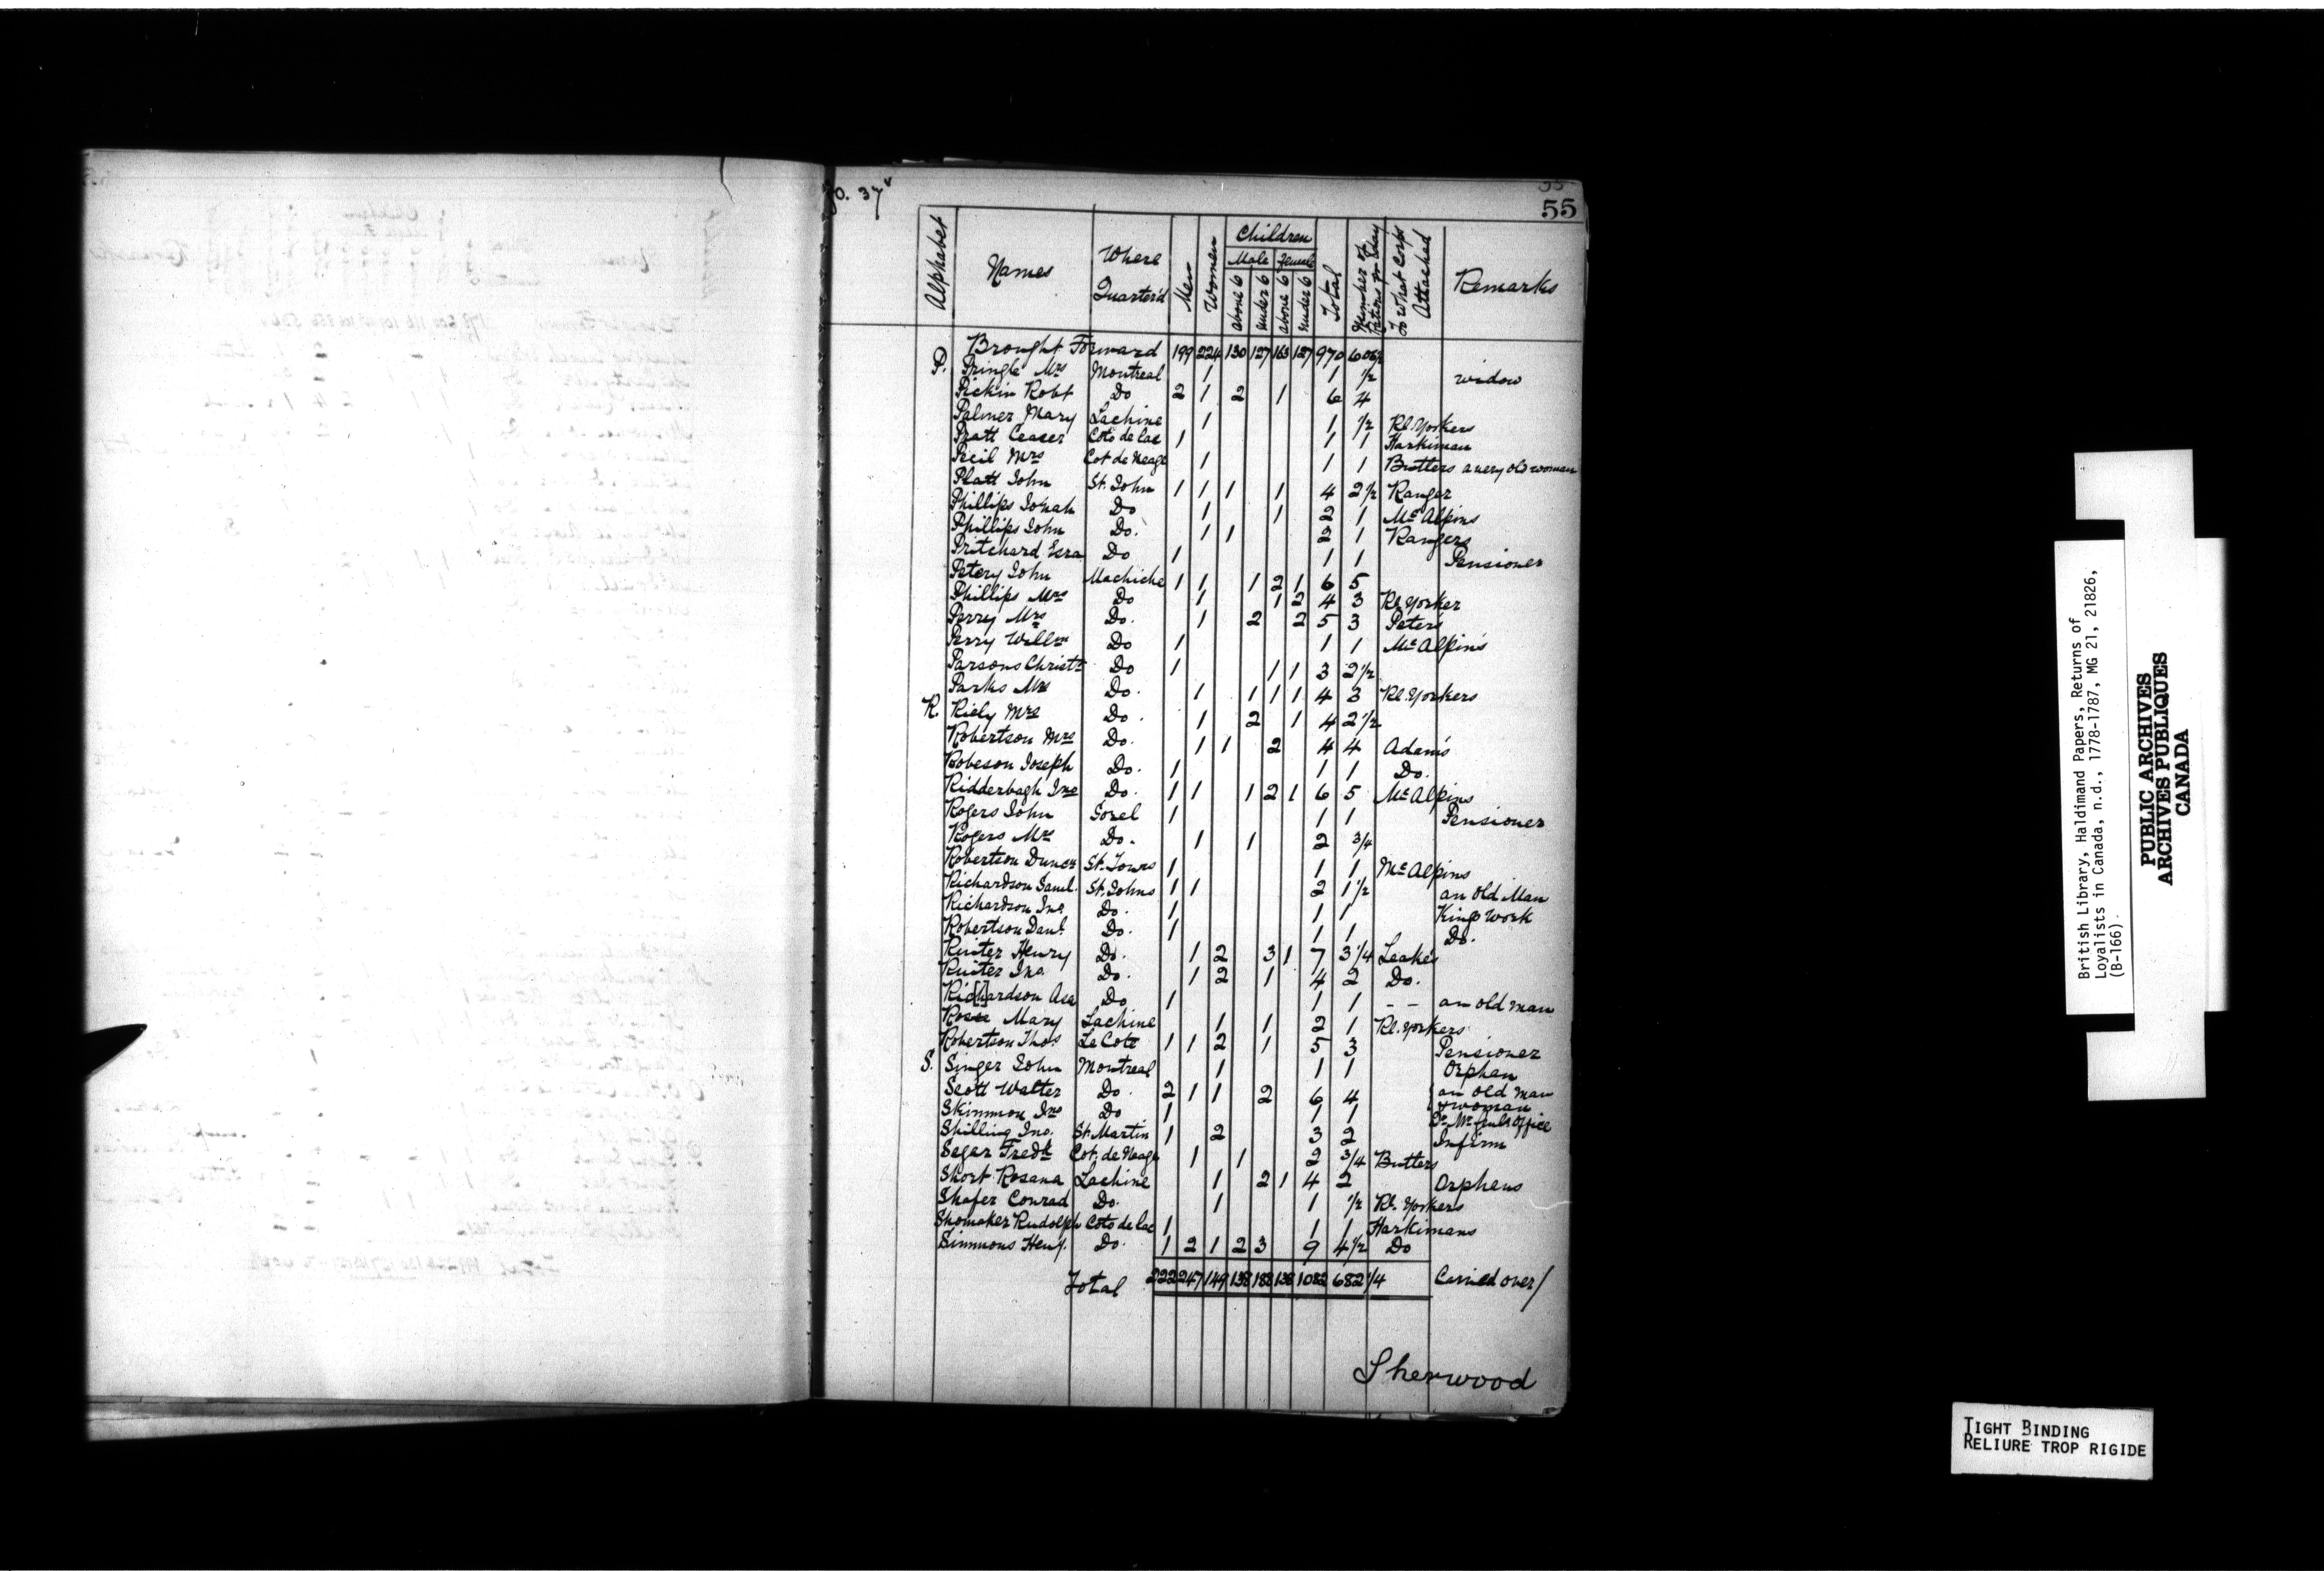 fo. 37v
55
Alphabet Names Where Quarter'd Men Women Children Male above 6 under 6 Female above 6 under 6 Total Number of Rations pr Day To What Corps Attached Remarks
Brought Forward 199 224 130 127 163 127 970 606½
P. Pringle Mrs Montreal 1 1 ½ widow
Pickin Robt Do 2 1 2 1 6 4
Palmer Mary Lachine 1 1 ½ Rl. Yorkers
Pratt Ceaser Coto de lac 1 1 1 Harkiman
Peil Mrs Cot de Neage 1 1 1 Butlers a very old woman
Platt John St. John 1 1 1 1 4 2½ Ranger
Phillips Jonah Do 1 1 2 1 Mc Alpins
Phillips John Do. 1 1 2 1 Rangers
Pritchard Esra Do 1 1 1 Pensioner
Petery John Machiche 1 1 1 2 1 6 5
Phillips Mrs Do 1 1 2 4 3 Rl. Yorker
Perry Mrs Do. 1 2 2 5 3 Peters
Perry Willm Do 1 1 1 Mc Alpin's
Parsons Christr Do 1 1 1 3 2½
Parks Mrs Do. 1 1 1 1 4 3 Rl. Yorkers
R. Riely Mrs Do. 1 2 1 4 2½
Robertson Mrs Do. 1 1 2 4 4 Adam's
Robeson Joseph Do. 1 1 1 Do.
Ridderbagh Jno Do. 1 1 1 2 1 6 5 Mc Alpins
Rogers John Sorel 1 1 1 Pensioner
Rogers Mrs Do. 1 1 2 ¾
Robertson Duncn St. Tours 1 1 1 Mc Alpins
Richardson Saml. St. Johns 1 1 2 1½ an old Man
Richardson Jno. Do. 1 1 1 Kings Work
Robertson Danl. Do. 1 1 1 Do.
Ruiter Henry Do. 1 2 3 1 7 3¼ Leake's
Ruiter Jno. Do. 1 2 1 4 2 Do.
Ric[h]ardson Asa Do 1 1 1 - - an old man
Rose Mary Lachine 1 1 2 1 Rl. Yorkers
Robertson Thos. Le Cote 1 1 2 1 5 3 Pensioner
S. Singer John Montreal 1 1 1 Orphan
Scott Walter Do. 2 1 1 2 6 4 an old man
& woman
Skimmon Jno Do 1 1 1 Office
Shilling Jno. St. Martin 1 2 3 2 Infirm
Seger Fredk Cot. de Neage 1 1 2 ¾ Butlers
Short Rosana Lachine 1 2 1 4 2 Orphens
Shafer Conrad Do. 1 1 ½ Rl. Yorkers
Shomaker Rudolph Coto de lac 1 1 1 Harkimans
Simmons Heny. Do. 1 2 1 2 3 9 4½ Do
Total 222 247 149 138 188 138 1082 682¼ Carried over/
Sherwood
British Library, Haldimand Papers, Returns of
Loyalists in Canada, n.d., 1778-1787, MG 21, 21826,
(B-166).
PUBLIC ARCHIVES
ARCHIVES PUBLIQUES
CANADA
TIGHT BINDING
RELIURE TROP RIGIDE